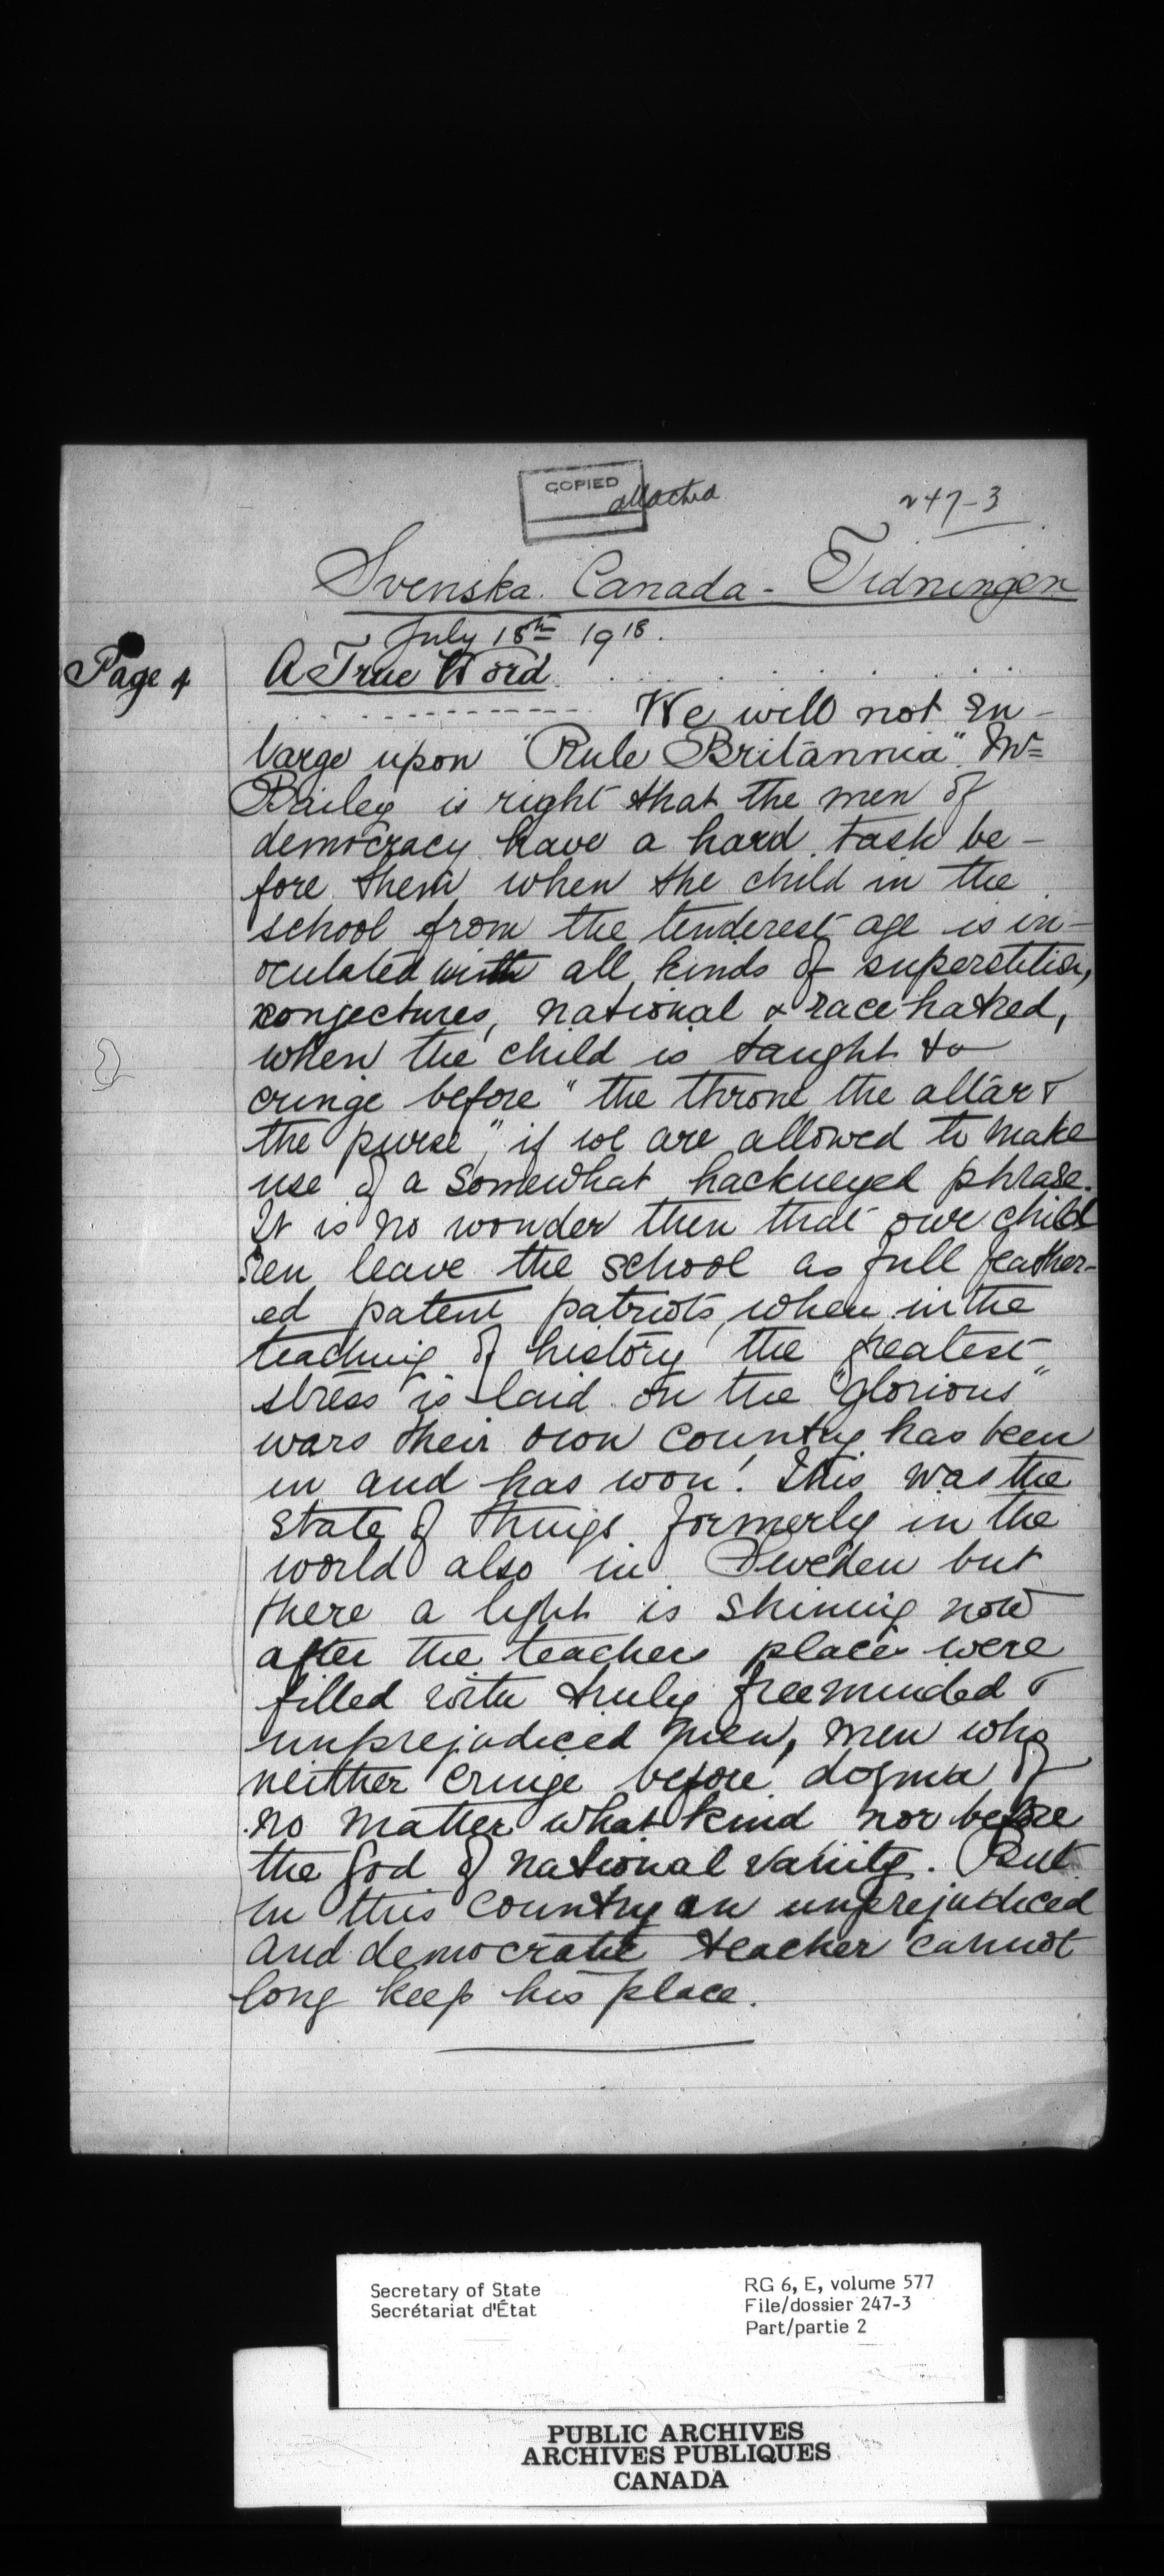 COPIED
attached
247-3
Svenska Canada-Tidningen
July 18th 1918.
Page 4
A True Word
We will not en-
large upon "Rule Britannia". Mr
Bailey is right that the men of
democracy have a hard task be-
fore them when the child in the
school from the tenderest age is in-
oculated with all kinds of superstition,
conjectures, national & race hatred,
when the child is taught to
cringe before "the throne the altar &
the purse", if we are allowed to make
use of a somewhat hackneyed phrase.
It is no wonder then that our child
ren leave the school as full feather-
ed patent patriots, when in the
teaching of history the greatest
stress is laid on the "glorious"
wars their own country has been
in and has won! This was the
state of things formerly in the
world also in Sweden but
there a light is shining now
after the teachers places were
filled with truly freeminded &
unprejudiced men, men who
neither cringe before dogma of
no matter what kind nor before
the god of national vanity. But
in this country an unprejudiced
and democratic teacher cannot
long keep his place.
Secretary of State
Secrétariat d'État
RG 6, E, volume 577
File/dossier 247-3
Part/partie 2
PUBLIC ARCHIVES
ARCHIVES PUBLIQUES
CANADA